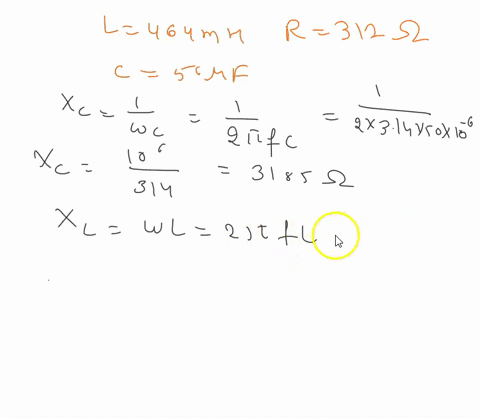 L=464mH R=312Ω
C=50MF
Xc=1/ωC = 1/2πfC = 1/2×3.14×50×10^-6
Xc=10^6/314 = 3185Ω
XL=ωL=2πfL